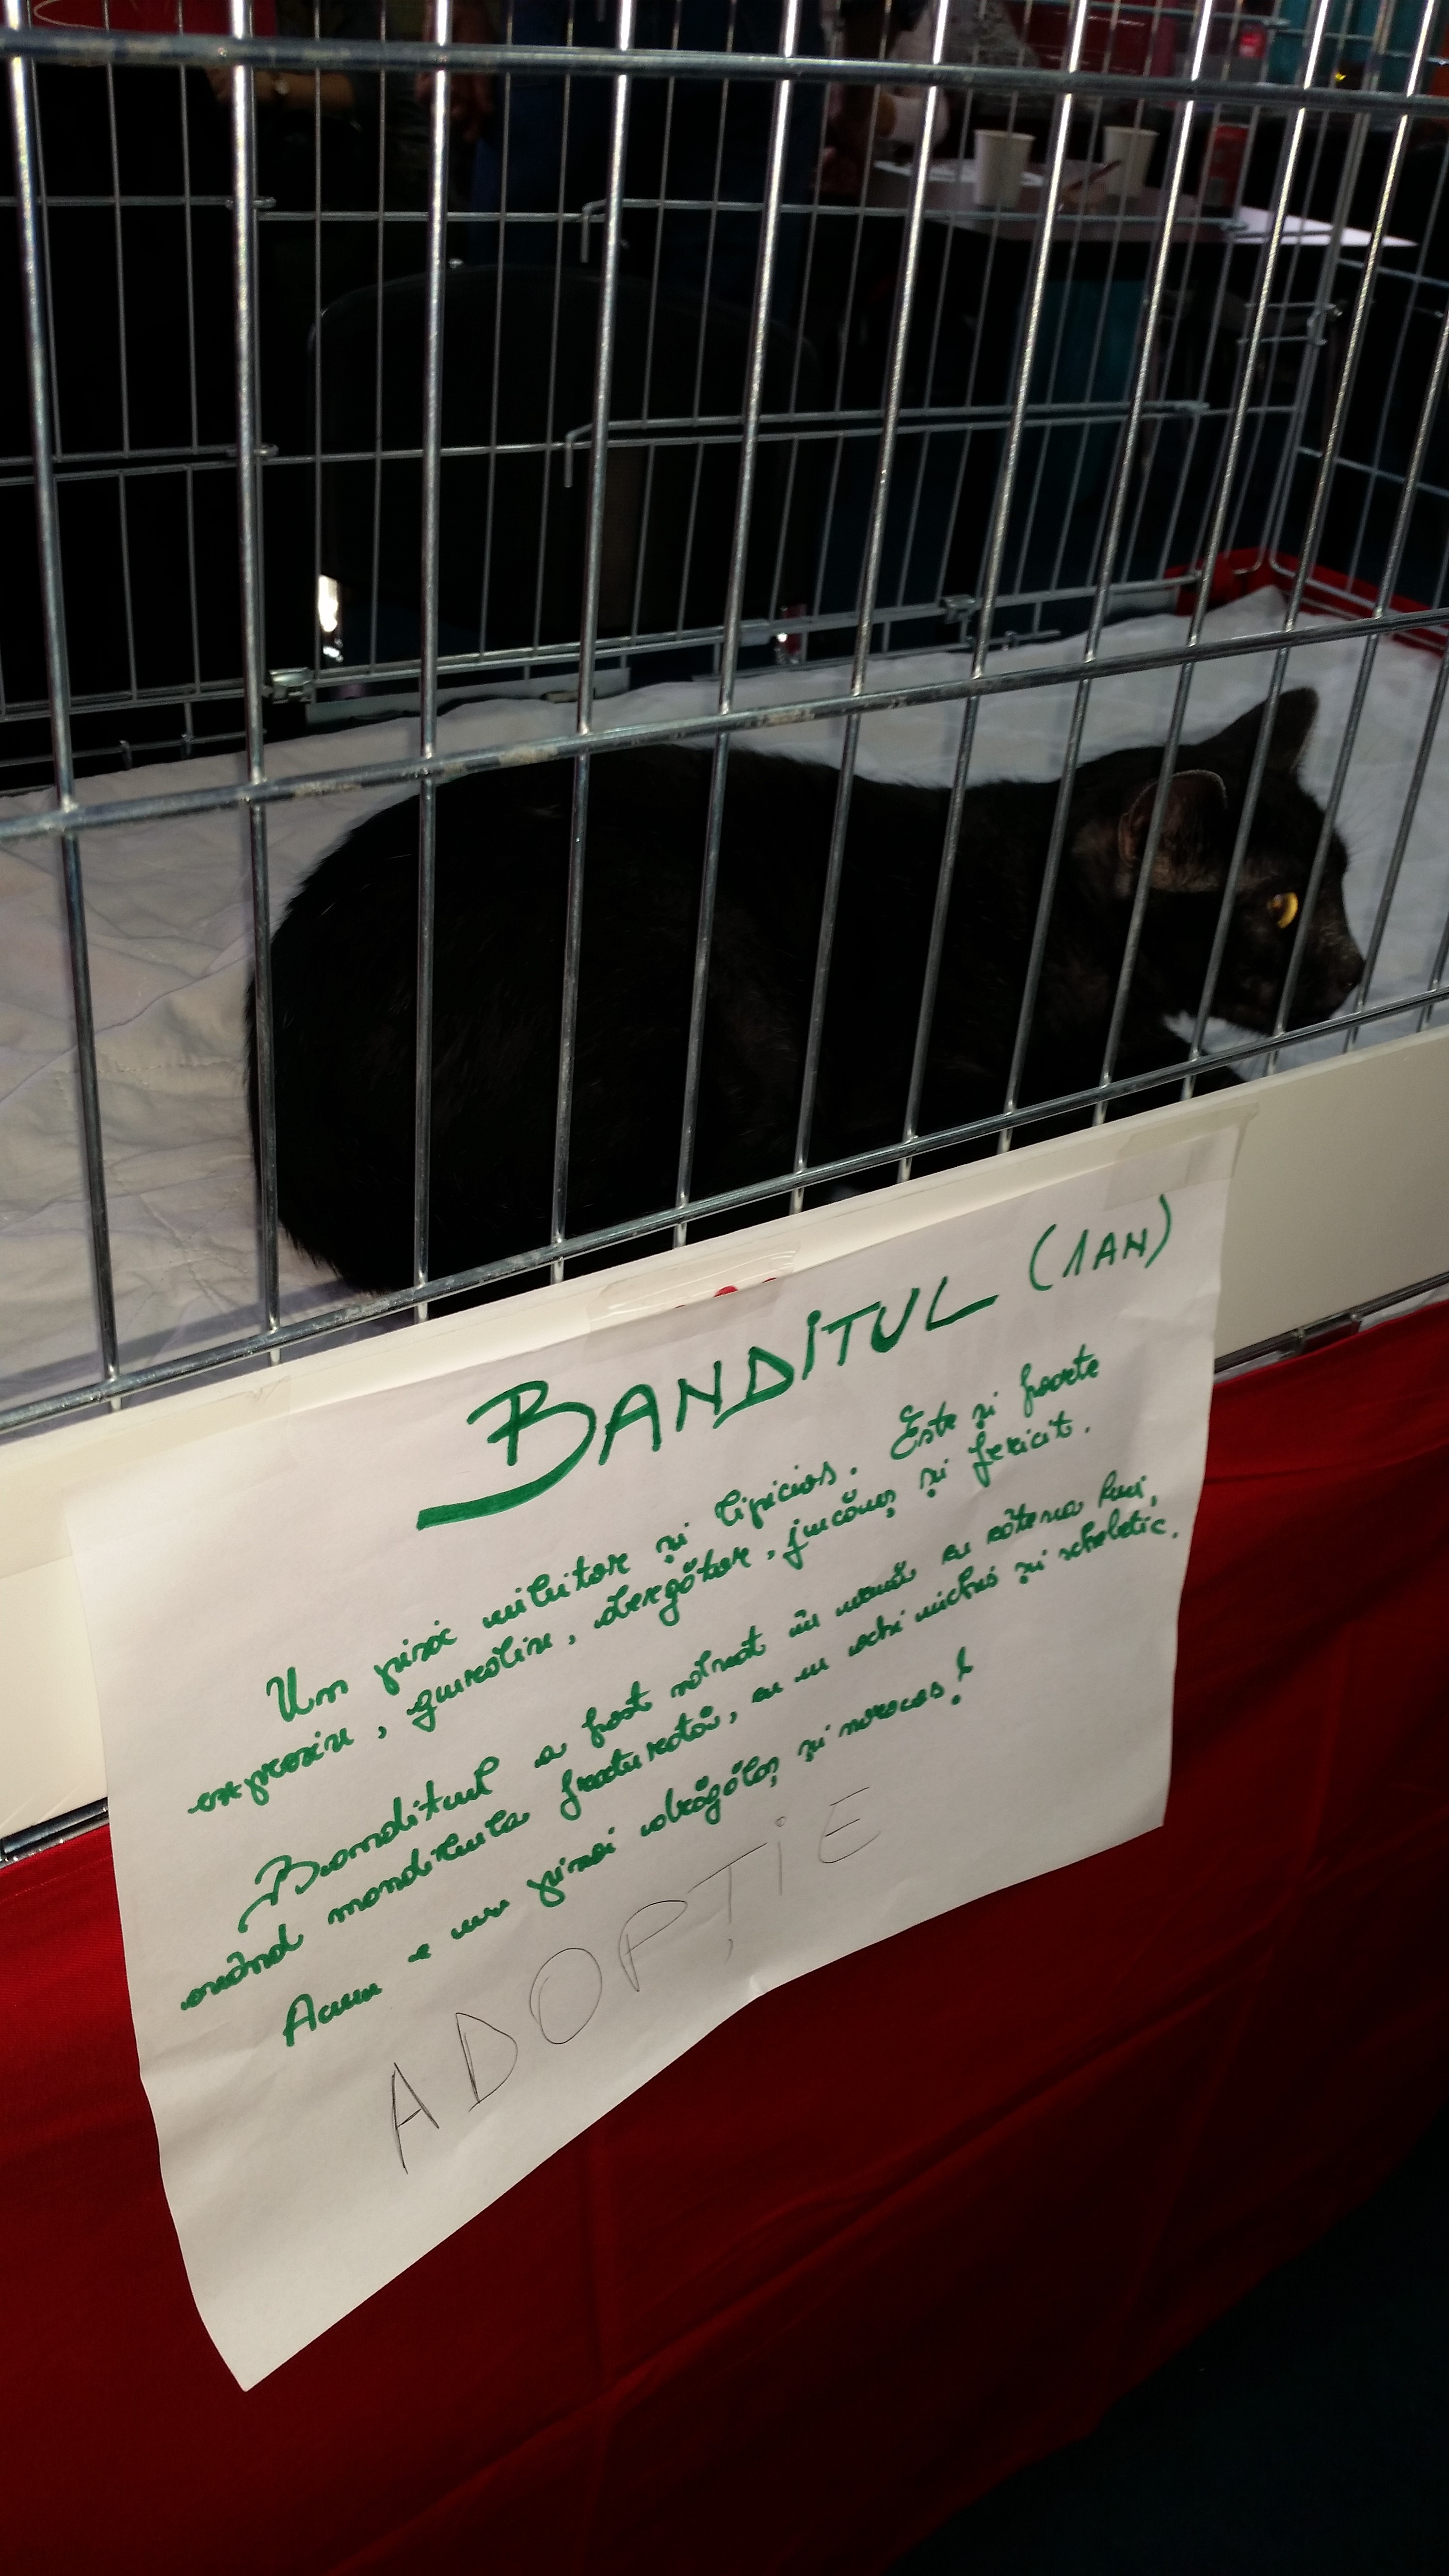 BANDITUL (1 AN)
Un pisic uiluitor și lipicios. Este și foarte
expresiv, guraliv, alergător, jucăuș și fericit.
Banditul a fost salvat în iarnă cu cățeaua lui,
având mandibula fracturată, cu un ochi închis și scheletic.
Acum e un pisoi drăgălaș și norocos!
ADOPȚIE